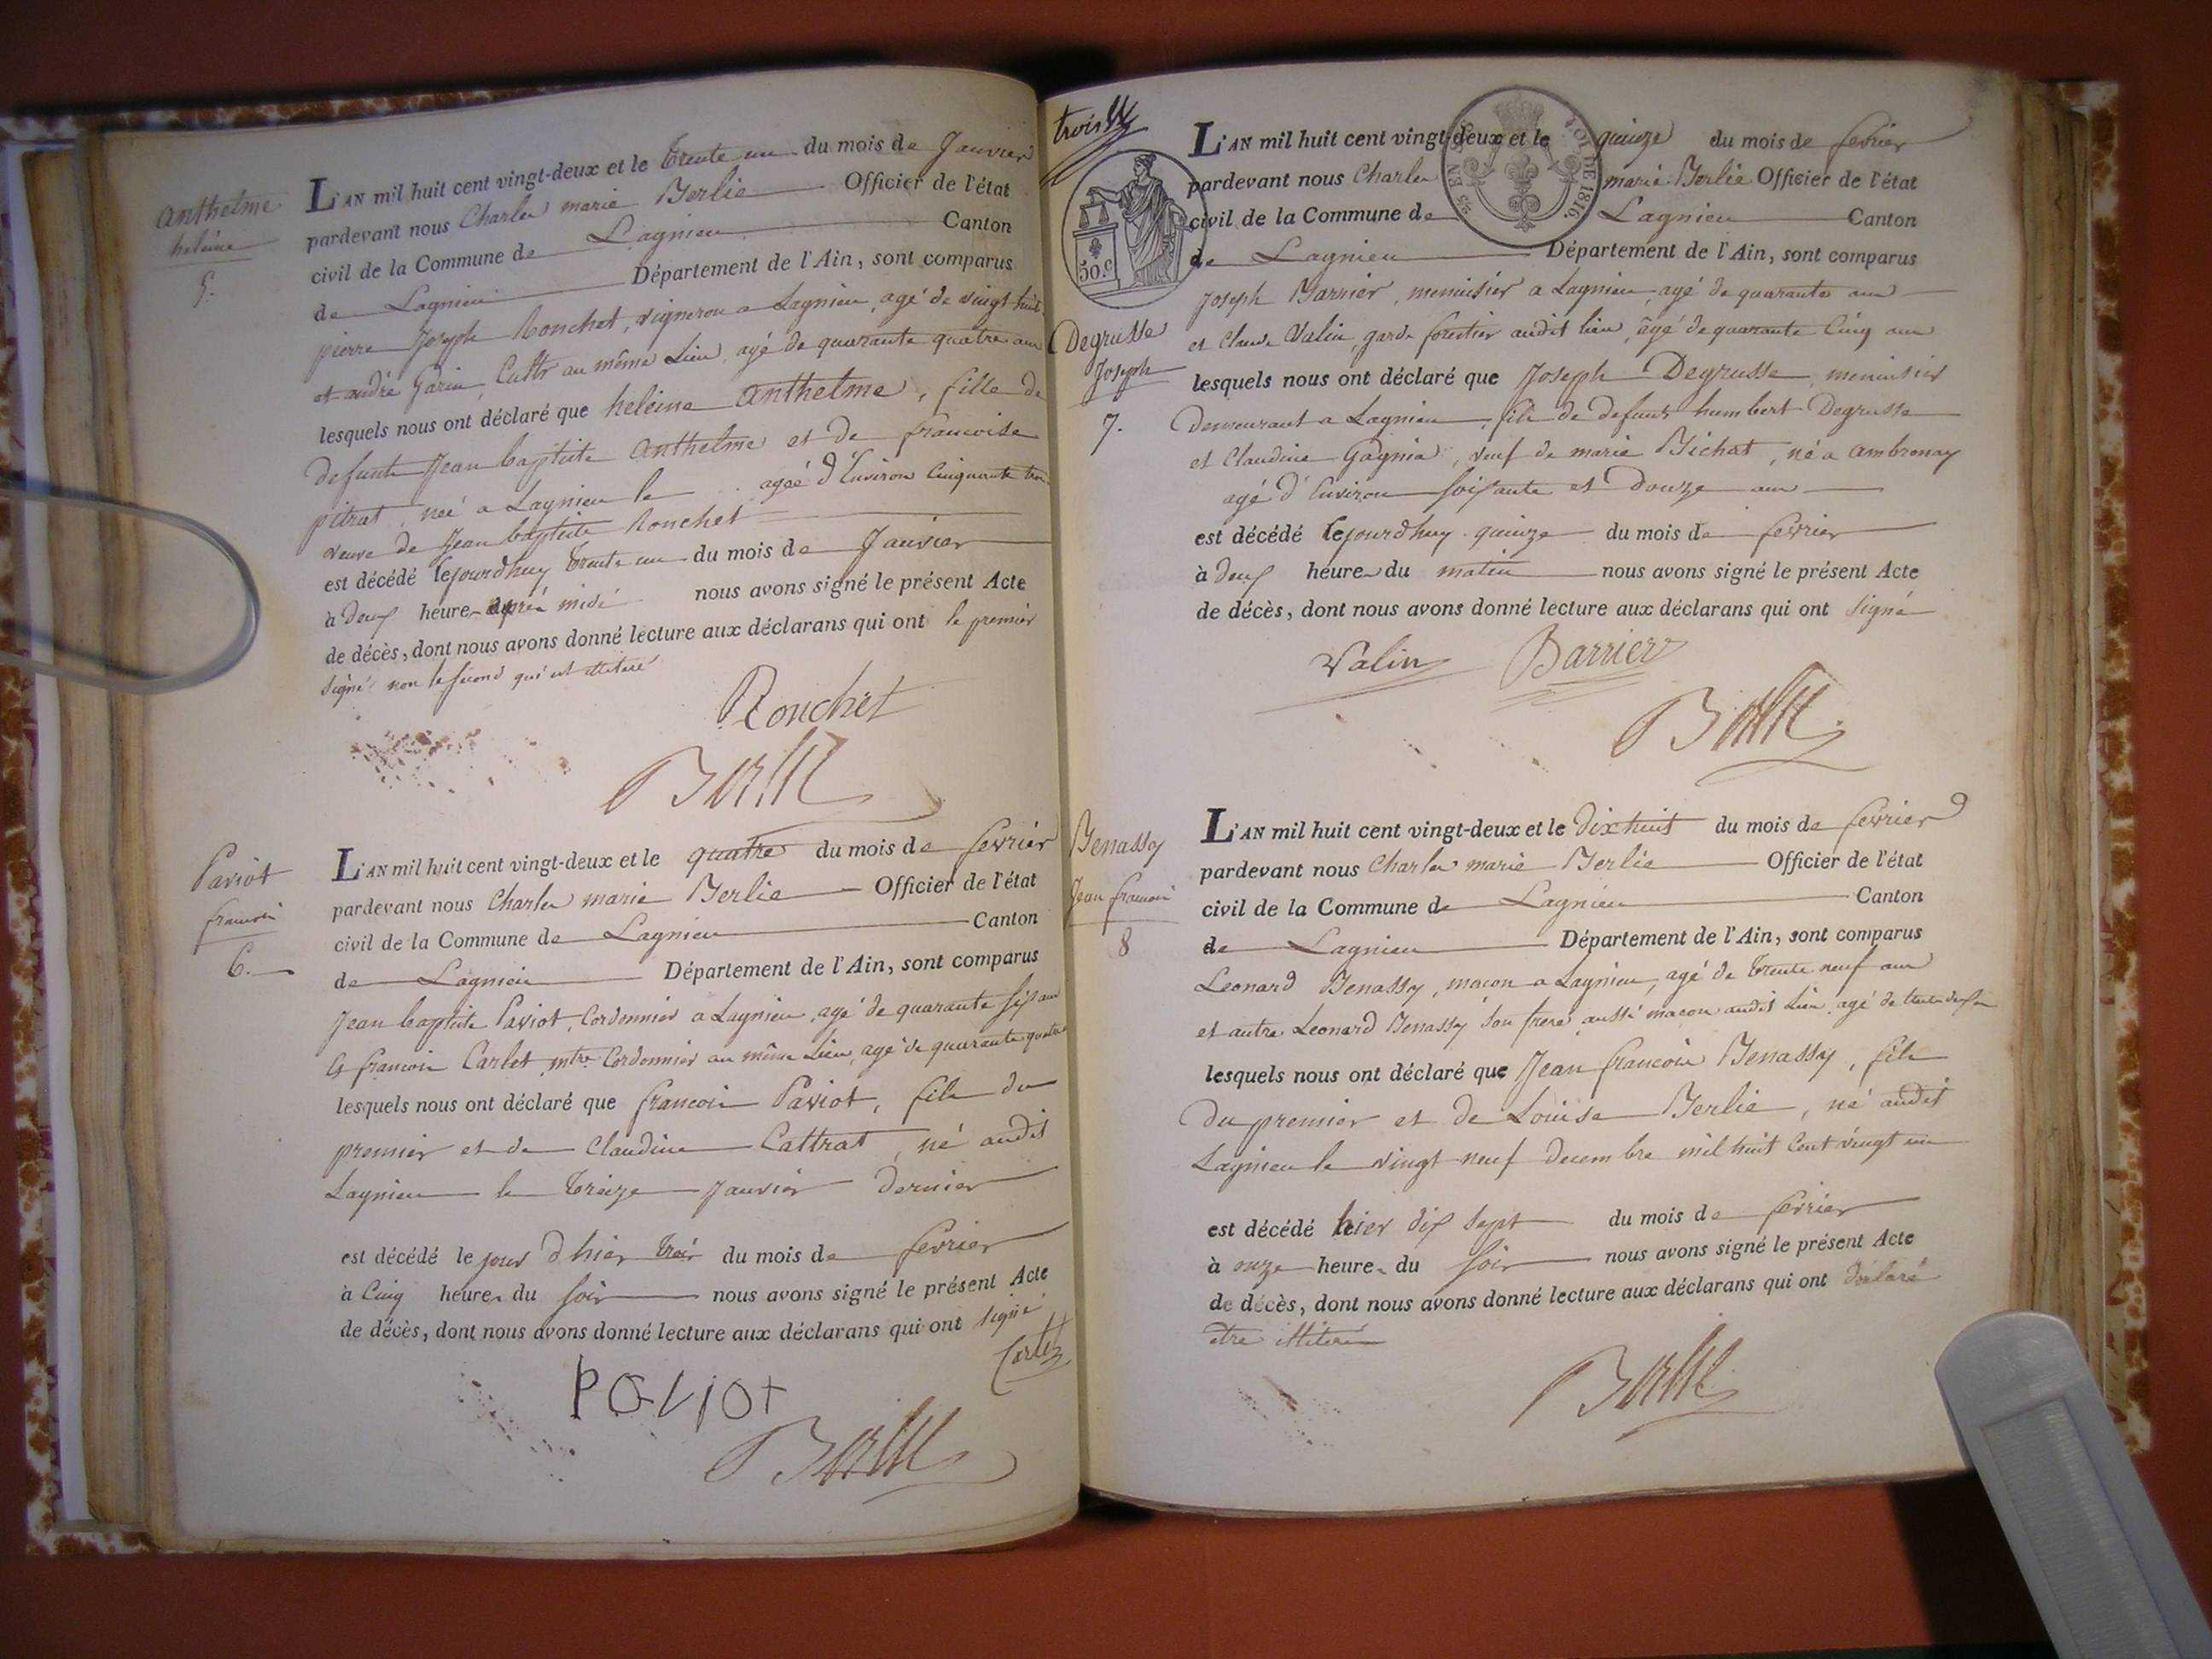 anthelme
heleine
5.
L'AN mil huit cent vingt-deux et le trente un du mois de Janvier
pardevant nous Charles marie Berlie Officier de l'état
civil de la Commune de Lagnieu Canton
de Lagnieu Département de l'Ain, sont comparus
pierre Joseph Ronchet, vigneron a Lagnieu, agé de vingt huit
et andré Garin, Cultr au même Lieu, agé de quarante quatre ans
lesquels nous ont déclaré que heleine anthelme, fille de
defunts Jean baptiste anthelme et de francoise
pitrat, neé a Lagnieu le agéé d'Environ Cinquante trois
veuve de Jean baptiste Ronchet
est décédé cejourdhuy trente un du mois de Janvier
à deux heures aprés midi nous avons signé le présent Acte
de décès, dont nous avons donné lecture aux déclarans qui ont le premier
signé non le second qui est illiteré
Ronchet
Berlie
Paviot
francois
6.
L'AN mil huit cent vingt-deux et le quatre du mois de fevrier
pardevant nous Charles marie Berlie Officier de l'état
civil de la Commune de Lagnieu Canton
de Lagnieu Département de l'Ain, sont comparus
Jean baptiste Paviot, Cordonnier a Lagnieu, agé de quarante six ans
Et francois Carlet, mtre Cordonnier au même Lieu, agé de quarante quatre
lesquels nous ont déclaré que francois Paviot, fils du
premier et de Claudine Cattrat, né audit
Lagnieu le treize Janvier dernier
est décédé le jour d'hier trois du mois de fevrier
à Cinq heures du soir nous avons signé le présent Acte
de décès, dont nous avons donné lecture aux déclarans qui ont signé
Carlet
PaViot
Berlie
trois
50.c
LOI DE 1816.
Degrusse
Joseph
7.
L'AN mil huit cent vingt-deux et le quinze du mois de fevrier
pardevant nous Charles marie Berlie Officier de l'état
civil de la Commune de Lagnieu Canton
de Lagnieu Département de l'Ain, sont comparus
Joseph Barrier, menuisier a Lagnieu, agé de quarante ans
et Claude Valin, garde forestier audit lieu, agé de quarante Cinq ans
lesquels nous ont déclaré que Joseph Degrusse, menuisier
demeurant a Lagnieu, fils de defunts humbert Degrusse
et Claudine Gagnia, veuf de marie Bichat, né a ambronay
agé d'Environ soixante et douze ans
est décédé cejourdhuy quinze du mois de fevrier
à deux heures du matin nous avons signé le présent Acte
de décès, dont nous avons donné lecture aux déclarans qui ont signé
Valin Barrier
Berlie
Benassy
Jean francois
8
L'AN mil huit cent vingt-deux et le dix huit du mois de fevrier
pardevant nous Charles marie Berlie Officier de l'état
civil de la Commune de Lagnieu Canton
de Lagnieu Département de l'Ain, sont comparus
Leonard Benassy, macon a Lagnieu, agé de trente neuf ans
et autre Leonard Benassy son frere, aussi macon audit Lieu, agé de trente deux ans
lesquels nous ont déclaré que Jean francois Benassy, fils
du premier et de Louise Berlie, né audit
Lagnieu le vingt neuf decembre mil huit Cent vingt un
est décédé hier dix sept du mois de fevrier
à onze heures du soir nous avons signé le présent Acte
de décès, dont nous avons donné lecture aux déclarans qui ont déclaré
etre illiterés
Berlie